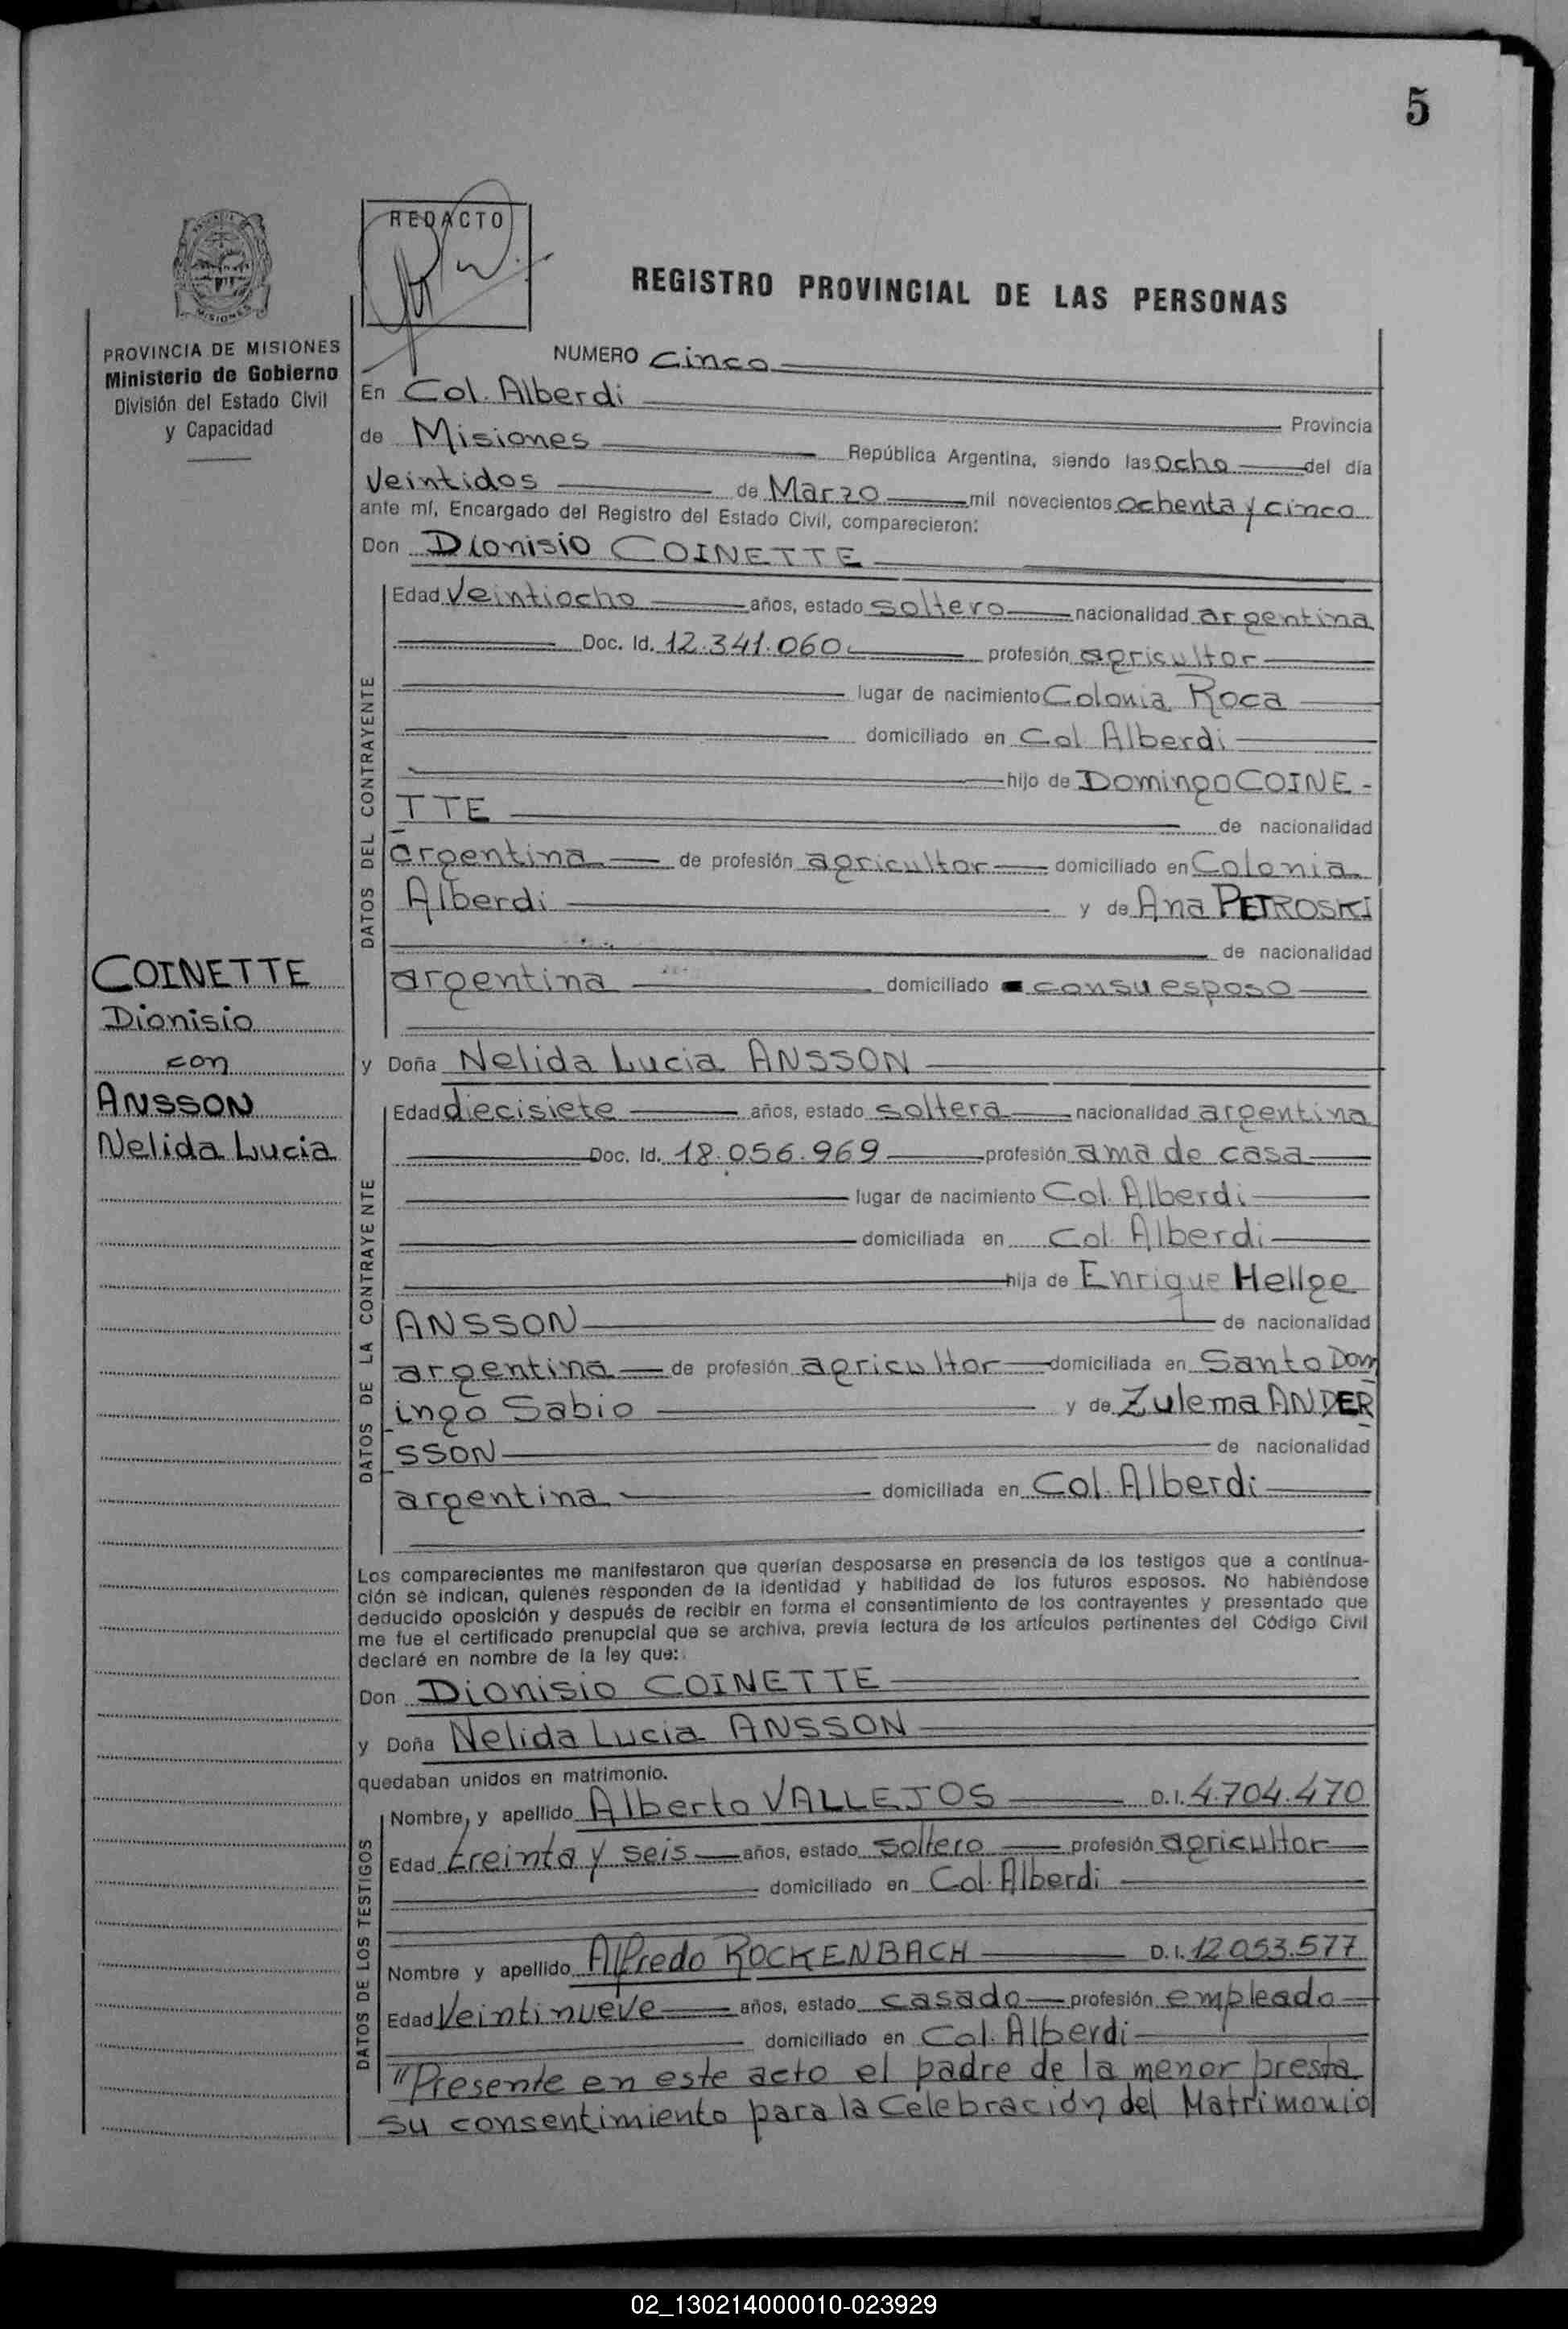 5
REDACTO
MISIONES
REGISTRO PROVINCIAL DE LAS PERSONAS
PROVINCIA DE MISIONES
Ministerio de Gobierno
División del Estado Civil
y Capacidad
NUMERO cinco
En Col. Alberdi Provincia
de Misiones República Argentina, siendo las ocho del día
veintidos de Marzo mil novecientos ochenta y cinco
ante mí, Encargado del Registro del Estado Civil, comparecieron:
Don Dionisio COINETTE
DATOS DEL CONTRAYENTE
Edad veintiocho años, estado soltero nacionalidad argentina
Doc. Id. 12.341.060 profesión agricultor
lugar de nacimiento Colonia Roca
domiciliado en Col Alberdi
hijo de Domingo COINE-
TTE de nacionalidad
argentina de profesión agricultor domiciliado en Colonia
Alberdi y de Ana PETROSKI
de nacionalidad
argentina domiciliado con su esposo
COINETTE
Dionisio
con
ANSSON
Nelida Lucia
y Doña Nelida Lucia ANSSON
DATOS DE LA CONTRAYENTE
Edad diecisiete años, estado soltera nacionalidad argentina
Doc. Id. 18.056.969 profesión ama de casa
lugar de nacimiento Col. Alberdi
domiciliada en Col. Alberdi
hija de Enrique Hellge
ANSSON de nacionalidad
argentina de profesión agricultor domiciliada en Santo Dom
ingo Sabio y de Zulema ANDER
SSON de nacionalidad
argentina domiciliada en Col. Alberdi
Los comparecientes me manifestaron que querían desposarse en presencia de los testigos que a continua-
ción se indican, quienes responden de la identidad y habilidad de los futuros esposos. No habiéndose
deducido oposición y después de recibir en forma el consentimiento de los contrayentes y presentado que
me fue el certificado prenupcial que se archiva, previa lectura de los artículos pertinentes del Código Civil
declaré en nombre de la ley que:
Don Dionisio COINETTE
y Doña Nelida Lucia ANSSON
quedaban unidos en matrimonio.
DATOS DE LOS TESTIGOS
Nombre y apellido Alberto VALLEJOS D.I. 4.704.470
Edad treinta y seis años, estado soltero profesión agricultor
domiciliado en Col. Alberdi
Nombre y apellido Alfredo ROCKENBACH D.I. 12.053.577
Edad Veintinueve años, estado casado profesión empleado
domiciliado en Col. Alberdi
"Presente en este acto el padre de la menor presta
su consentimiento para la Celebración del Matrimonio
02_130214000010-023929